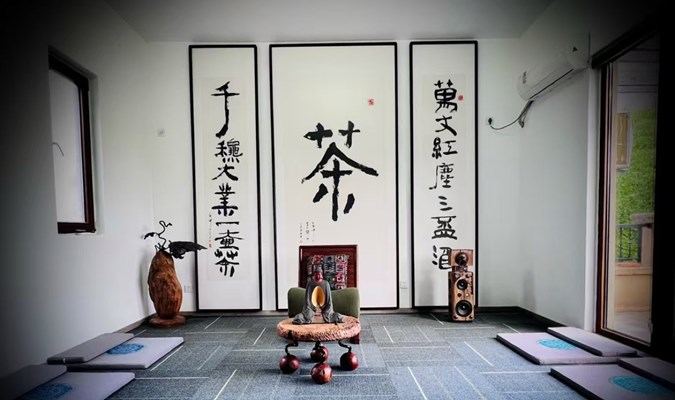 萬丈紅塵三盃酒
茶
千穐大業一壺茶